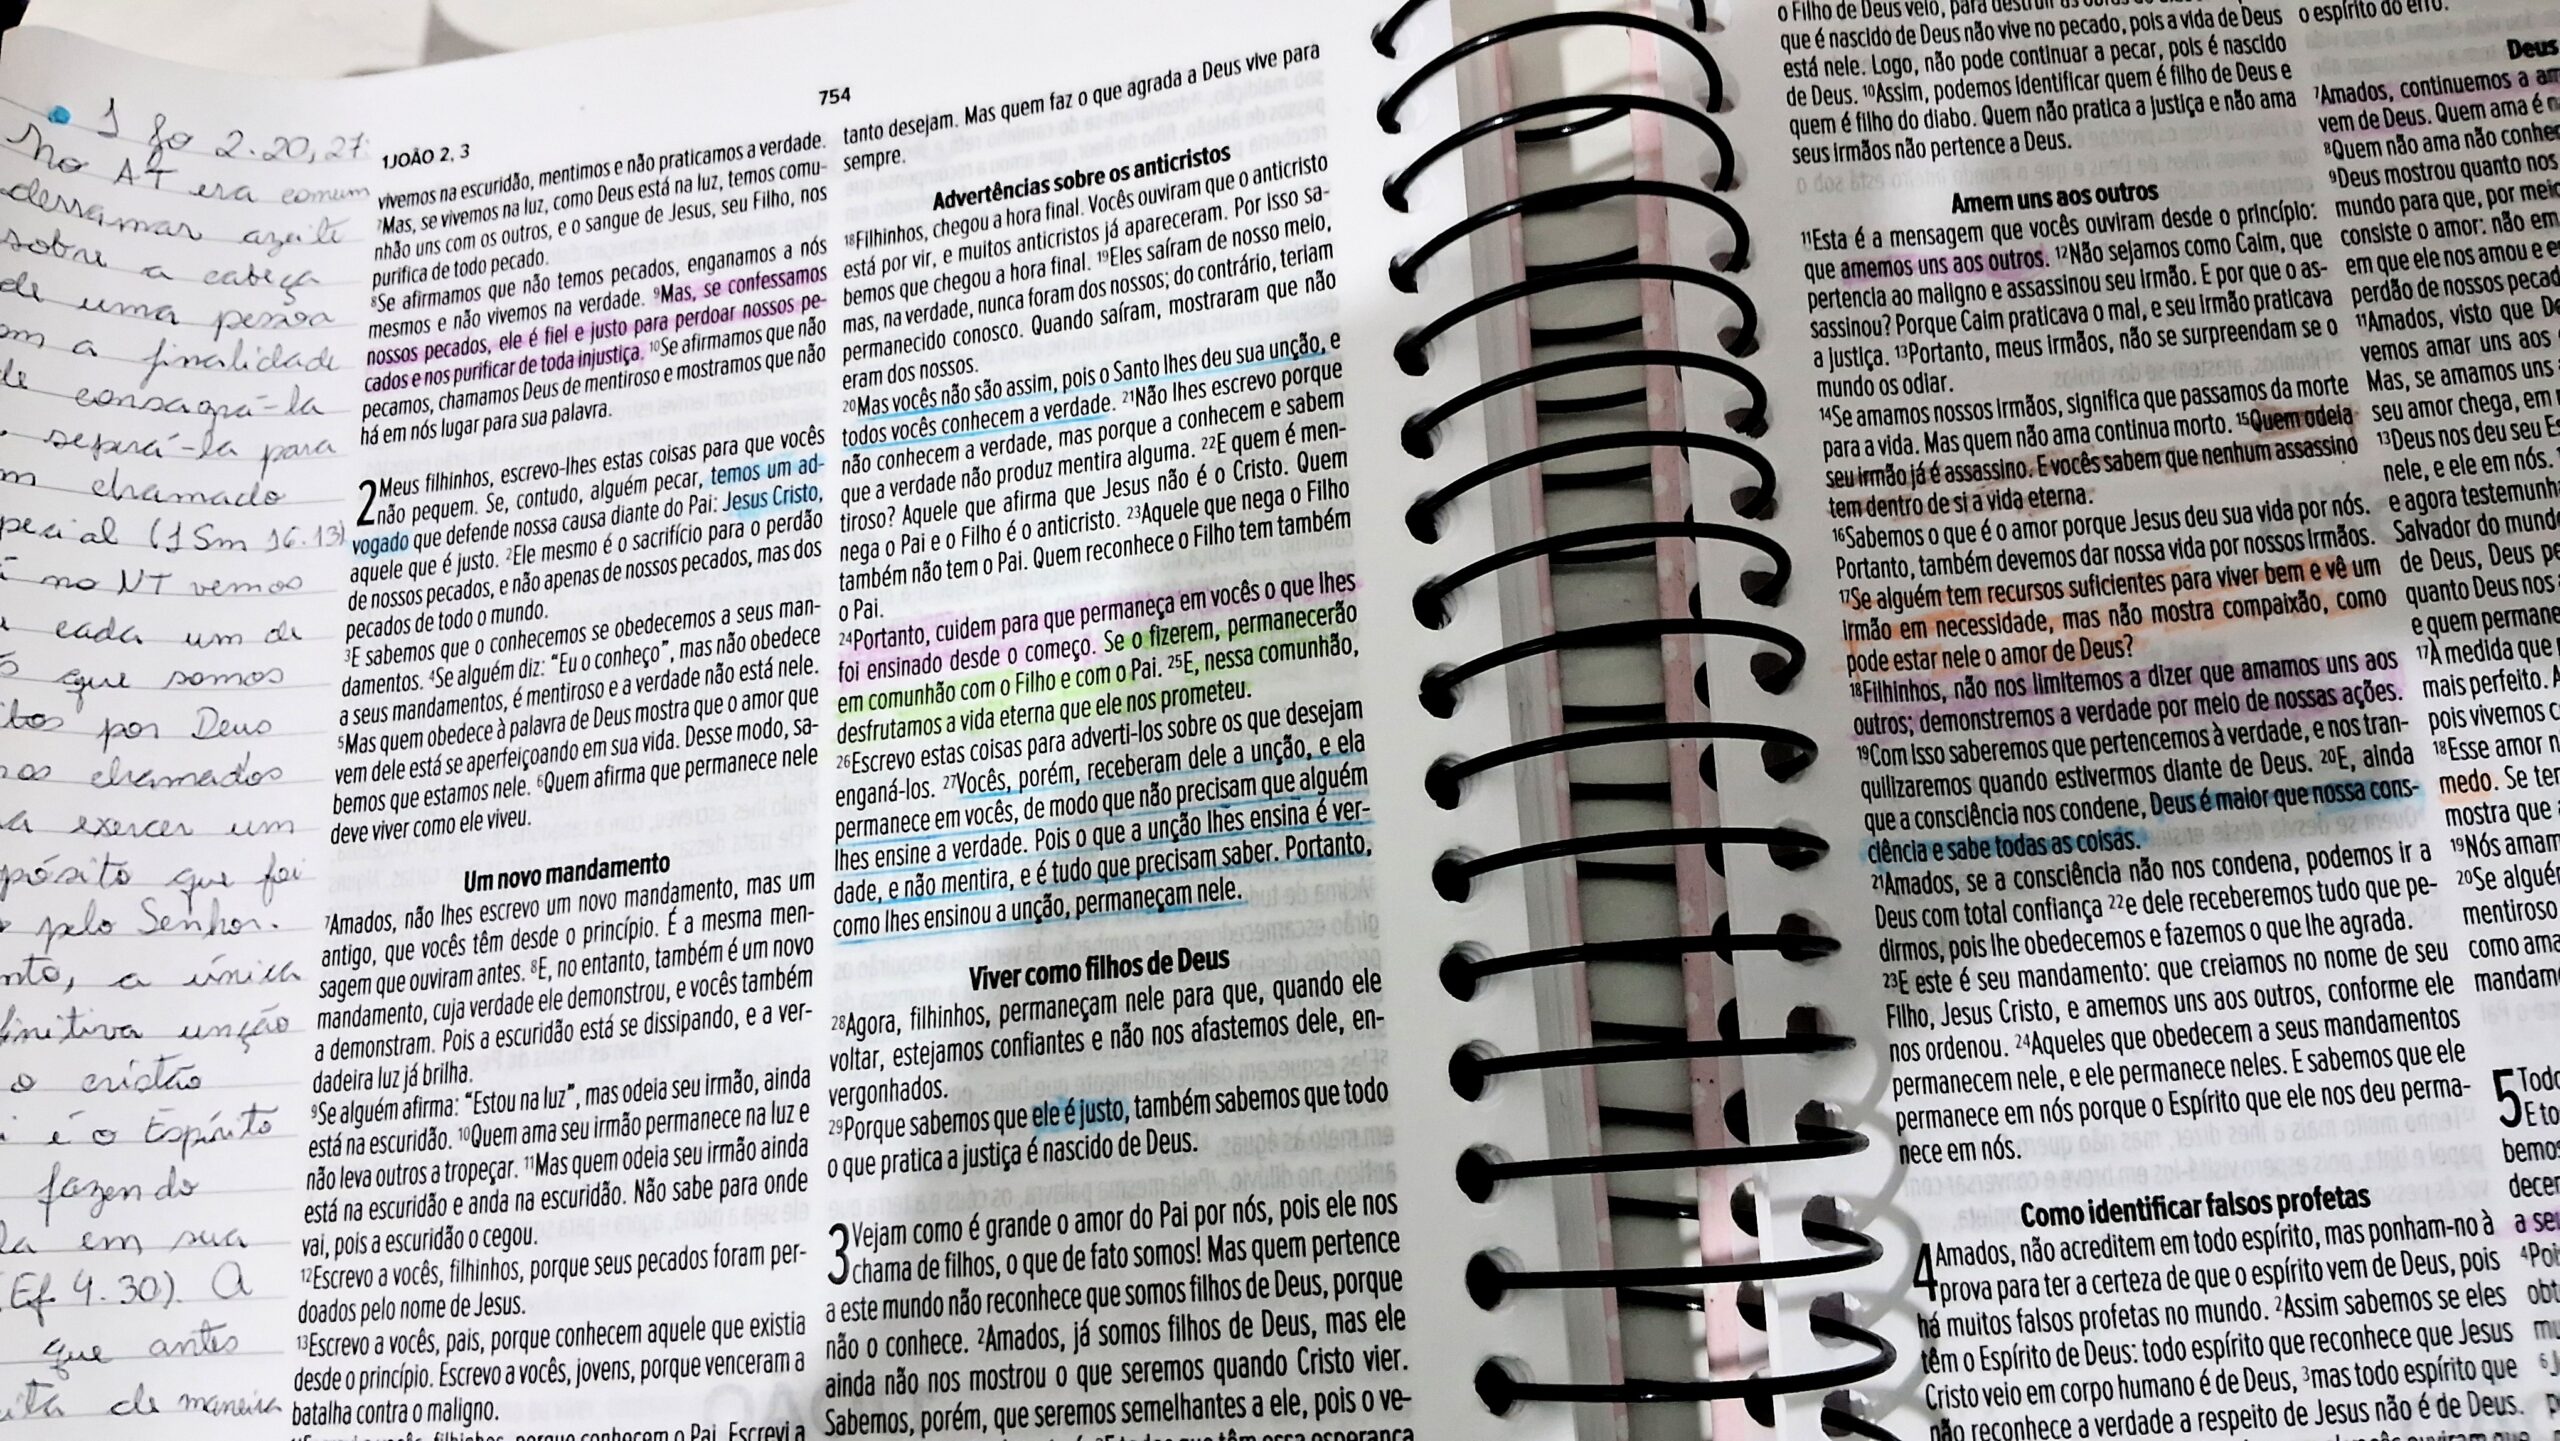 1 Jo 2.20, 27:
No AT era comum
derramar azeite
sobre a cabeça
de uma pessoa
com a finalidade
de consagrá-la
separá-la para
chamado
(1 Sm 16.13)
no NT vemos
cada um de
que somos
por Deus
chamados
exercer um
que foi
pelo Senhor.
a única
unção
o cristão
é o Espírito
fazendo
em sua
(Ef 4.30). A
que antes
de maneira
754
1JOÃO 2, 3
vivemos na escuridão, mentimos e não praticamos a verdade.
7Mas, se vivemos na luz, como Deus está na luz, temos comu-
nhão uns com os outros, e o sangue de Jesus, seu Filho, nos
purifica de todo pecado.
8Se afirmamos que não temos pecados, enganamos a nós
mesmos e não vivemos na verdade. 9Mas, se confessamos
nossos pecados, ele é fiel e justo para perdoar nossos pe-
cados e nos purificar de toda injustiça. 10Se afirmamos que não
pecamos, chamamos Deus de mentiroso e mostramos que não
há em nós lugar para sua palavra.
2 Meus filhinhos, escrevo-lhes estas coisas para que vocês
não pequem. Se, contudo, alguém pecar, temos um ad-
vogado que defende nossa causa diante do Pai: Jesus Cristo,
aquele que é justo. 2Ele mesmo é o sacrifício para o perdão
de nossos pecados, e não apenas de nossos pecados, mas dos
pecados de todo o mundo.
3E sabemos que o conhecemos se obedecemos a seus man-
damentos. 4Se alguém diz: “Eu o conheço”, mas não obedece
a seus mandamentos, é mentiroso e a verdade não está nele.
5Mas quem obedece à palavra de Deus mostra que o amor que
vem dele está se aperfeiçoando em sua vida. Desse modo, sa-
bemos que estamos nele. 6Quem afirma que permanece nele
deve viver como ele viveu.
Um novo mandamento
7Amados, não lhes escrevo um novo mandamento, mas um
antigo, que vocês têm desde o princípio. É a mesma men-
sagem que ouviram antes. 8E, no entanto, também é um novo
mandamento, cuja verdade ele demonstrou, e vocês também
a demonstram. Pois a escuridão está se dissipando, e a ver-
dadeira luz já brilha.
9Se alguém afirma: “Estou na luz”, mas odeia seu irmão, ainda
está na escuridão. 10Quem ama seu irmão permanece na luz e
não leva outros a tropeçar. 11Mas quem odeia seu irmão ainda
está na escuridão e anda na escuridão. Não sabe para onde
vai, pois a escuridão o cegou.
12Escrevo a vocês, filhinhos, porque seus pecados foram per-
doados pelo nome de Jesus.
13Escrevo a vocês, pais, porque conhecem aquele que existia
desde o princípio. Escrevo a vocês, jovens, porque venceram a
batalha contra o maligno.
filhinhos, porque conhecem o Pai. Escrevi a
tanto desejam. Mas quem faz o que agrada a Deus vive para
sempre.
Advertências sobre os anticristos
18Filhinhos, chegou a hora final. Vocês ouviram que o anticristo
está por vir, e muitos anticristos já apareceram. Por isso sa-
bemos que chegou a hora final. 19Eles saíram de nosso meio,
mas, na verdade, nunca foram dos nossos; do contrário, teriam
permanecido conosco. Quando saíram, mostraram que não
eram dos nossos.
20Mas vocês não são assim, pois o Santo lhes deu sua unção, e
todos vocês conhecem a verdade. 21Não lhes escrevo porque
não conhecem a verdade, mas porque a conhecem e sabem
que a verdade não produz mentira alguma. 22E quem é men-
tiroso? Aquele que afirma que Jesus não é o Cristo. Quem
nega o Pai e o Filho é o anticristo. 23Aquele que nega o Filho
também não tem o Pai. Quem reconhece o Filho tem também
o Pai.
24Portanto, cuidem para que permaneça em vocês o que lhes
foi ensinado desde o começo. Se o fizerem, permanecerão
em comunhão com o Filho e com o Pai. 25E, nessa comunhão,
desfrutamos a vida eterna que ele nos prometeu.
26Escrevo estas coisas para adverti-los sobre os que desejam
enganá-los. 27Vocês, porém, receberam dele a unção, e ela
permanece em vocês, de modo que não precisam que alguém
lhes ensine a verdade. Pois o que a unção lhes ensina é ver-
dade, e não mentira, e é tudo que precisam saber. Portanto,
como lhes ensinou a unção, permaneçam nele.
Viver como filhos de Deus
28Agora, filhinhos, permaneçam nele para que, quando ele
voltar, estejamos confiantes e não nos afastemos dele, en-
vergonhados.
29Porque sabemos que ele é justo, também sabemos que todo
o que pratica a justiça é nascido de Deus.
3 Vejam como é grande o amor do Pai por nós, pois ele nos
chama de filhos, o que de fato somos! Mas quem pertence
a este mundo não reconhece que somos filhos de Deus, porque
não o conhece. 2Amados, já somos filhos de Deus, mas ele
ainda não nos mostrou o que seremos quando Cristo vier.
Sabemos, porém, que seremos semelhantes a ele, pois o ve-
têm essa esperança
o Filho de Deus veio, para destruir as obras do
que é nascido de Deus não vive no pecado, pois a vida de Deus
está nele. Logo, não pode continuar a pecar, pois é nascido
de Deus. 10Assim, podemos identificar quem é filho de Deus e
quem é filho do diabo. Quem não pratica a justiça e não ama
seus irmãos não pertence a Deus.
Amem uns aos outros
11Esta é a mensagem que vocês ouviram desde o princípio:
que amemos uns aos outros. 12Não sejamos como Caim, que
pertencia ao maligno e assassinou seu irmão. E por que o as-
sassinou? Porque Caim praticava o mal, e seu irmão praticava
a justiça. 13Portanto, meus irmãos, não se surpreendam se o
mundo os odiar.
14Se amamos nossos irmãos, significa que passamos da morte
para a vida. Mas quem não ama continua morto. 15Quem odeia
seu irmão já é assassino. E vocês sabem que nenhum assassino
tem dentro de si a vida eterna.
16Sabemos o que é o amor porque Jesus deu sua vida por nós.
Portanto, também devemos dar nossa vida por nossos irmãos.
17Se alguém tem recursos suficientes para viver bem e vê um
irmão em necessidade, mas não mostra compaixão, como
pode estar nele o amor de Deus?
18Filhinhos, não nos limitemos a dizer que amamos uns aos
outros; demonstremos a verdade por meio de nossas ações.
19Com isso saberemos que pertencemos à verdade, e nos tran-
quilizaremos quando estivermos diante de Deus. 20E, ainda
que a consciência nos condene, Deus é maior que nossa cons-
ciência e sabe todas as coisas.
21Amados, se a consciência não nos condena, podemos ir a
Deus com total confiança 22e dele receberemos tudo que pe-
dirmos, pois lhe obedecemos e fazemos o que lhe agrada.
23E este é seu mandamento: que creiamos no nome de seu
Filho, Jesus Cristo, e amemos uns aos outros, conforme ele
nos ordenou. 24Aqueles que obedecem a seus mandamentos
permanecem nele, e ele permanece neles. E sabemos que ele
permanece em nós porque o Espírito que ele nos deu perma-
nece em nós.
Como identificar falsos profetas
4 Amados, não acreditem em todo espírito, mas ponham-no à
prova para ter a certeza de que o espírito vem de Deus, pois
há muitos falsos profetas no mundo. 2Assim sabemos se eles
têm o Espírito de Deus: todo espírito que reconhece que Jesus
Cristo veio em corpo humano é de Deus, 3mas todo espírito que
não reconhece a verdade a respeito de Jesus não é de Deus.
o espírito do erro.
Deus
7Amados, continuemos a
vem de Deus. Quem ama é
8Quem não ama não
9Deus mostrou quanto nos
mundo para que, por meio
consiste o amor: não em
em que ele nos amou e
perdão de nossos
11Amados, visto que
vemos amar uns aos
Mas, se amamos uns
seu amor chega, em
13Deus nos deu seu
nele, e ele em nós.
e agora
Salvador do mundo
de Deus, Deus
quanto Deus nos
e quem
17À medida que
mais perfeito.
pois vivemos
18Esse amor
medo. Se
mostra que
19Nós
20Se alguém
mentiroso
como
5
a
4
6